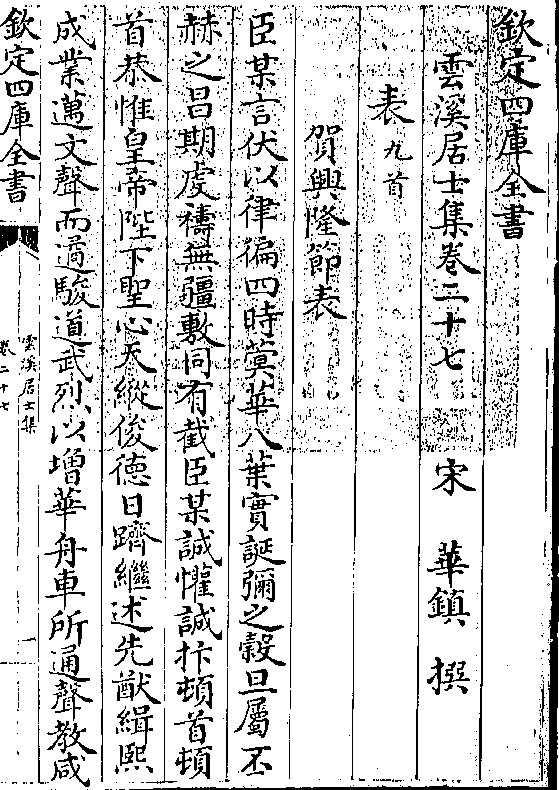 欽定四庫全書
雲溪居士集卷二十七
宋 華鎮 撰
表九首
賀興隆節表
臣某言伏以律徧四時蓂華八葉實誕彌之穀旦屬丕
赫之昌期虔禱無疆敷同有截臣某誠懽誠抃頓首頓
首恭惟皇帝陛下聖心天縱俊德日躋繼述先猷緝熙
成業邁文聲而遹駿道武烈以增華舟車所通聲教咸
欽定四庫全書
雲溪居士集
卷二十七
一